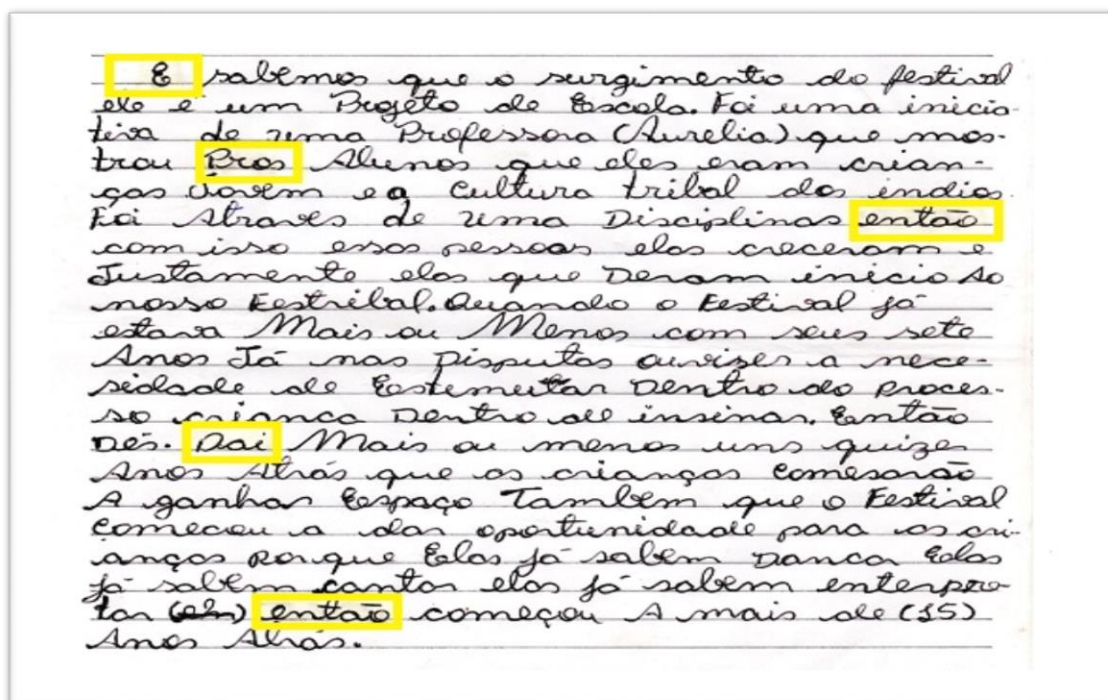 E sabemos que o surgimento do festival
ele é um Progéto de Escola. Foi uma inicia-
tiva de uma Professora (Aurelia) que mos-
trou Pros Alunos que eles eram crian-
ças Jovem e a Cultura tribal dos índios.
Foi Atraves de uma Disciplinas enttão
com isso essas pessoas elas creceram e
Justamente elas que Deram início Ao
nosso Festribal. Quando o Festival já
estava Mais ou Menos com seus sete
Anos Já nas Disputas a nece-
sidade de Dentro do proces-
so criança Dentro de insinar. Então
Des. Dai Mais ou menos uns quizes
Anos Atrás que as crianças comesarão
A ganhar Espaço Também que o Festival
Começou a dar oportunidade para as cri-
anças porque Elas já sabem Danca Eelas
já sabem cantar elas já sabem enterpre-
tar enttão começou A mais de (15)
Anos Atrás.